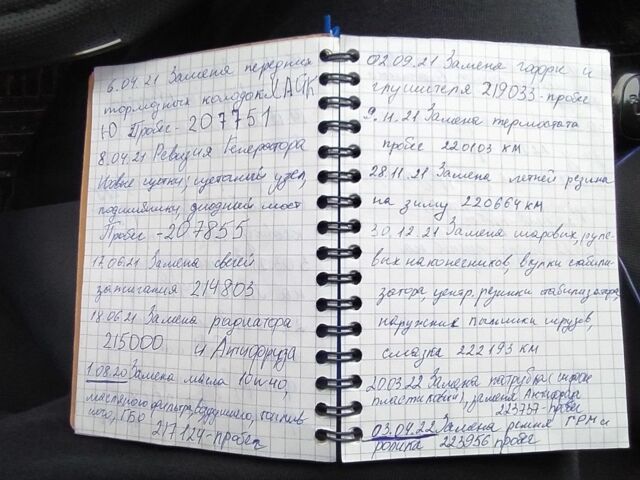 6.04.21 Замена передних
тормозных колодок ХАЙК
Ю Пробег - 207751
8.04.21 Ревизия Генератора
Новые щетки, щеточный узел,
подшипники, диодный мост
Пробег - 207855
17.06.21 Замена свечей
зажигания 214803
18.06.21 Замена радиатора
215000 и Антифриза
1.08.20 Замена масла 10w40,
масляного фильтра, воздушного, топлив
ного, ГБО
217124 - пробег
02.09.21 Замена гофры и
глушителя 219033 - пробег
9.11.21 Замена термостата
пробег 220103 км
28.11.21 Замена летней резины
на зиму 220664 км
30.12.21 Замена шаровых, руле-
вых наконесников, втулки стабили-
затора, центр. резинки стабилизатора,
наружние пыльники шрузов,
смазка 222193 км
20.03.22 Замена патрубка (
пластиковый), замена Антифриза
223757 - пробег
03.04.22 Замена ремня ГРМ и
ролика 223956 пробег